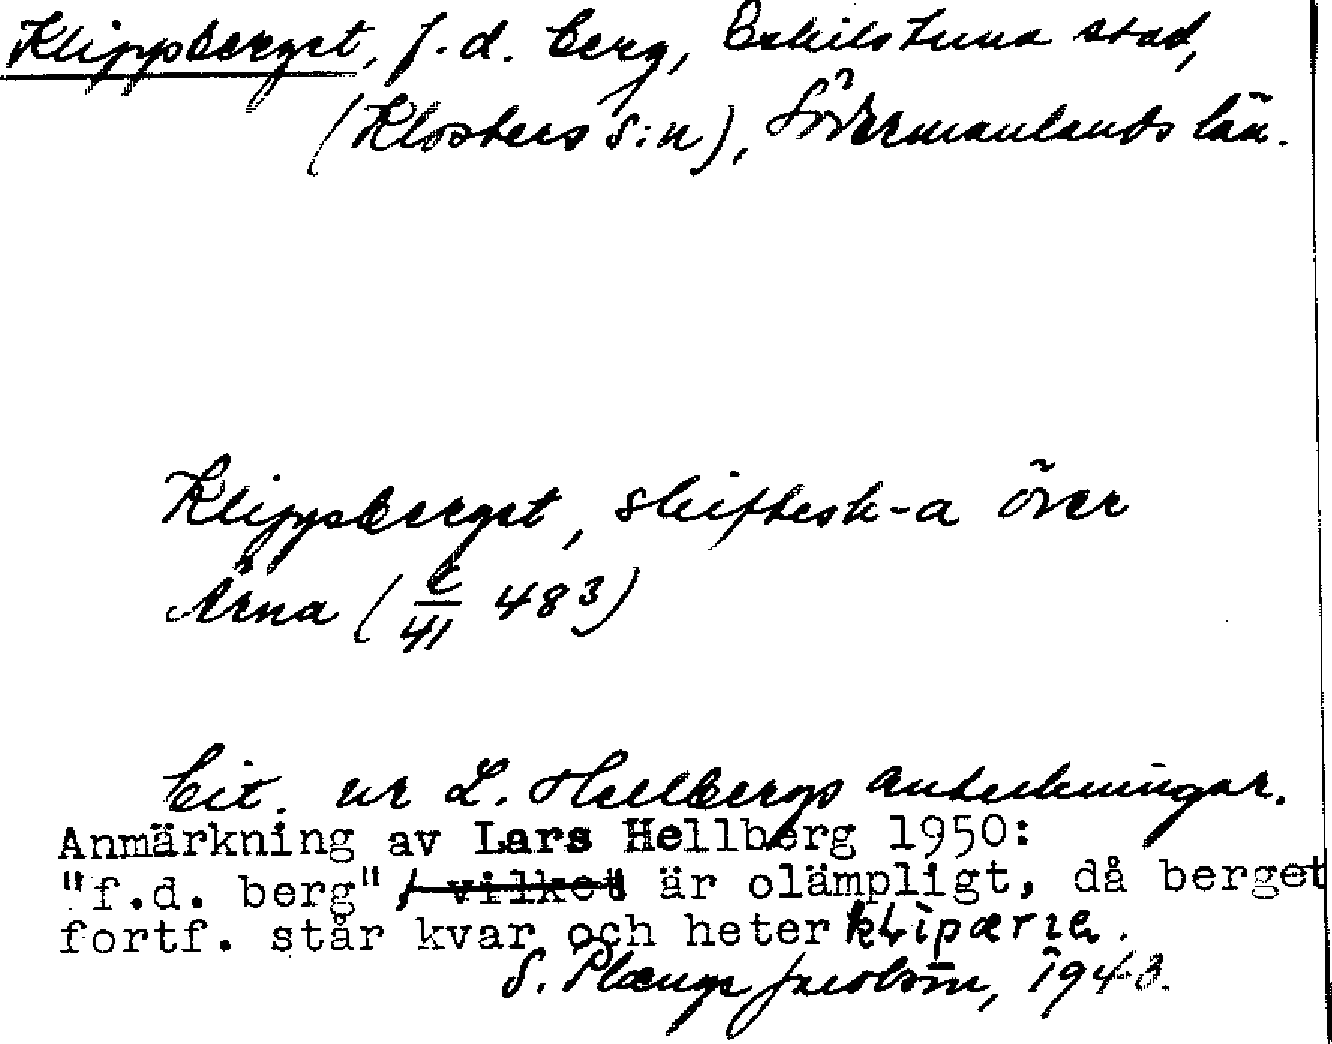 Klippberget, f.d. berg, Eskilstuna stad,
(Klosters s:n), Södermanlands län.
Klippsberget, skiftesk-a över
Årna ( C/41 483)
Cit. ur L. Hellbergs anteckningar.
Anmärkning av Lars Hellberg 1950:
"f.d. berg", vilket är olämpligt, då berget
fortf. står kvar och heter
S. Plænge Jacobson, 1943.